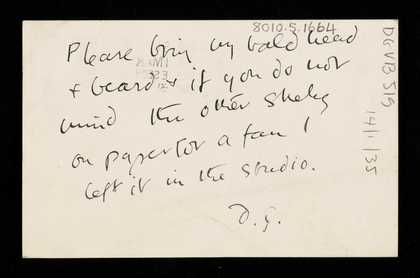 8010.5.1664
Please bring my bald head
& beard & if you do not
mind the other sketch
on paper for a fan I
left it in the studio.
D.G.
DG VB 519
14/1/35